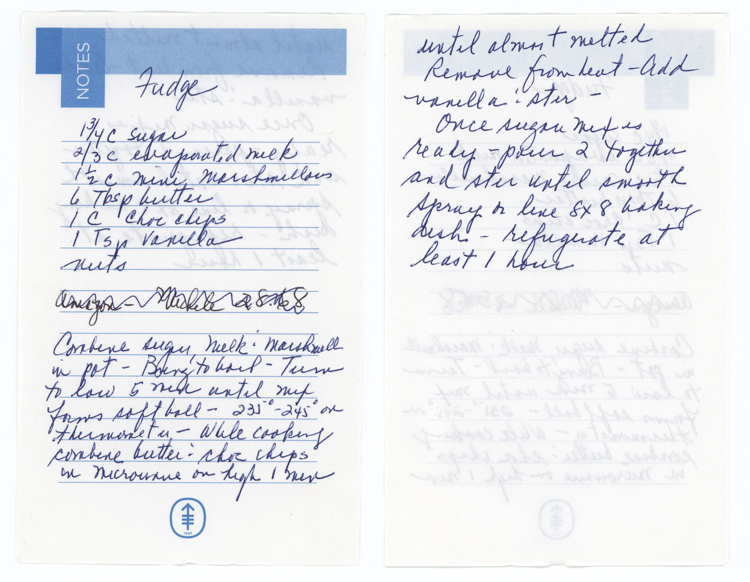 NOTES
Fudge
1 3/4 C sugar
2/3 C evaporated milk
1 1/2 C mini marshmellows
6 Tbsp butter
1 C choc chips
1 Tsp vanilla
nuts
Amazon - Michele
Combine sugar, milk & marshmell
in pot - Bring to boil - Turn
to low 5 min until mix
forms soft ball - 235° - 245° on
thermometer - While cooking
combine butter & choc chips
in microwave on high 1 min
until almost melted
Remove from heat - Add
vanilla & stir -
Once sugar mix is
ready - pour 2 together
and stir until smooth
Spray or line 8x8 baking
dish - refrigerate at
least 1 hour